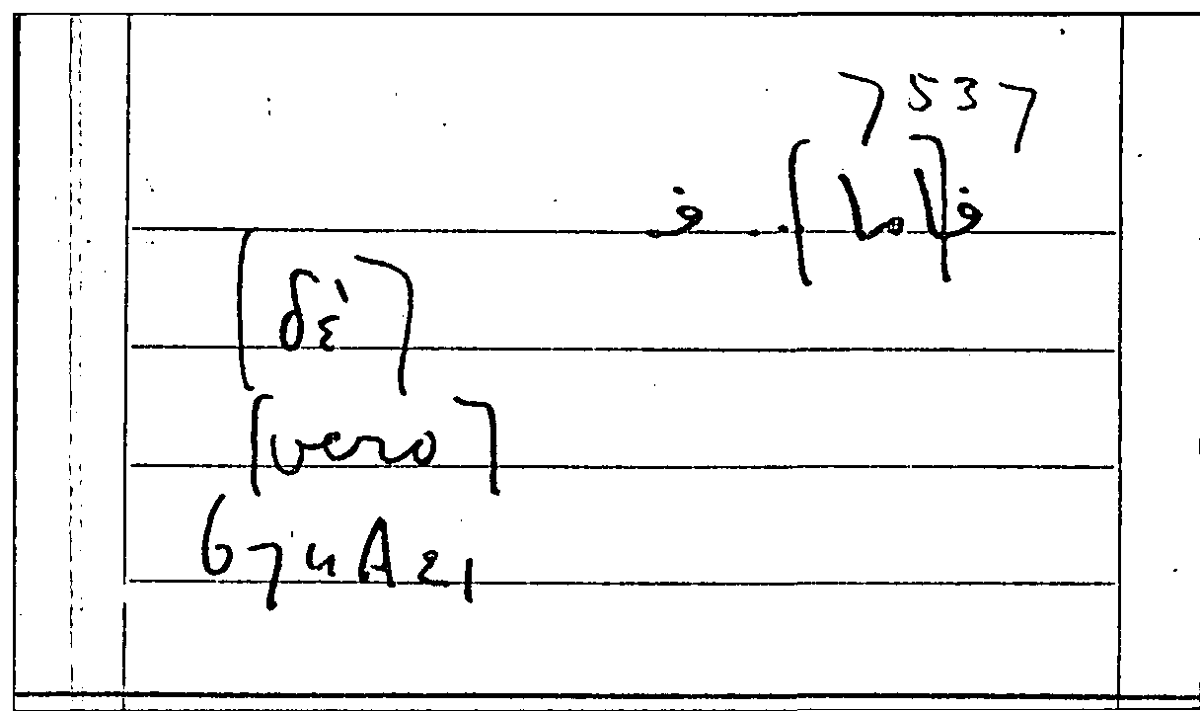 7537
فا[ما] .. فـ
[δὲ]
[vero]
674A21